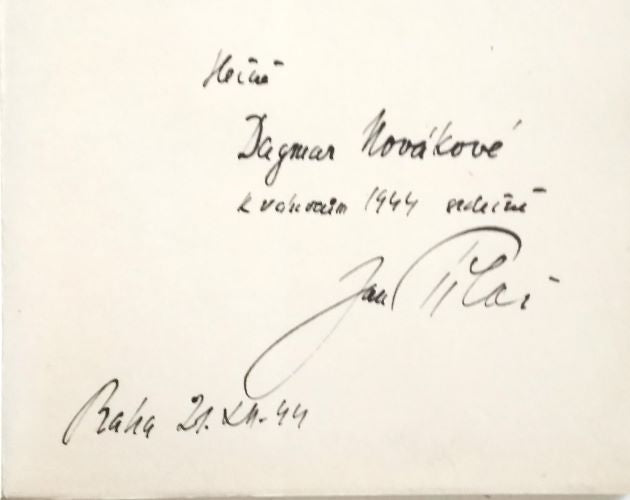 Slečně
Dagmar Novákové
k vánocům 1944 srdečně
Jan Pilař
Praha 21.XII.44